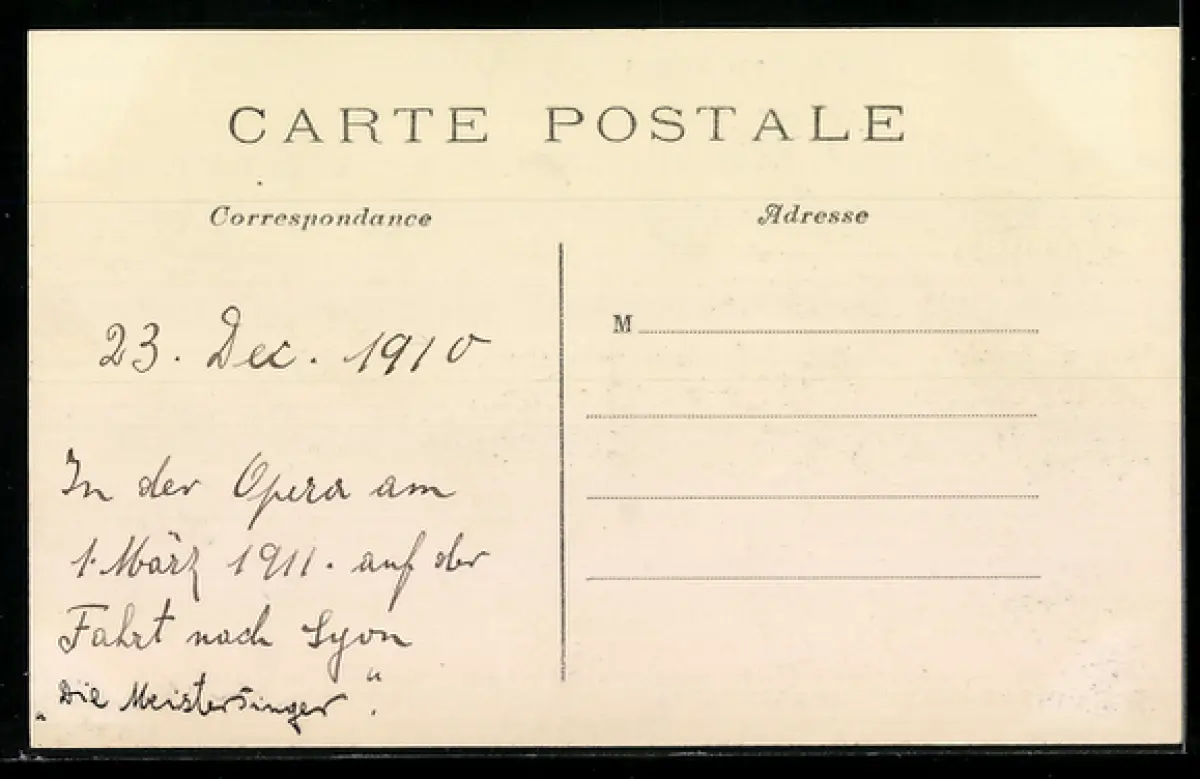 CARTE POSTALE
Correspondance
Adresse
23. Dec. 1910
M
In der Opera am
1. März 1911. auf der
Fahrt nach Lyon
„Die Meistersinger“.